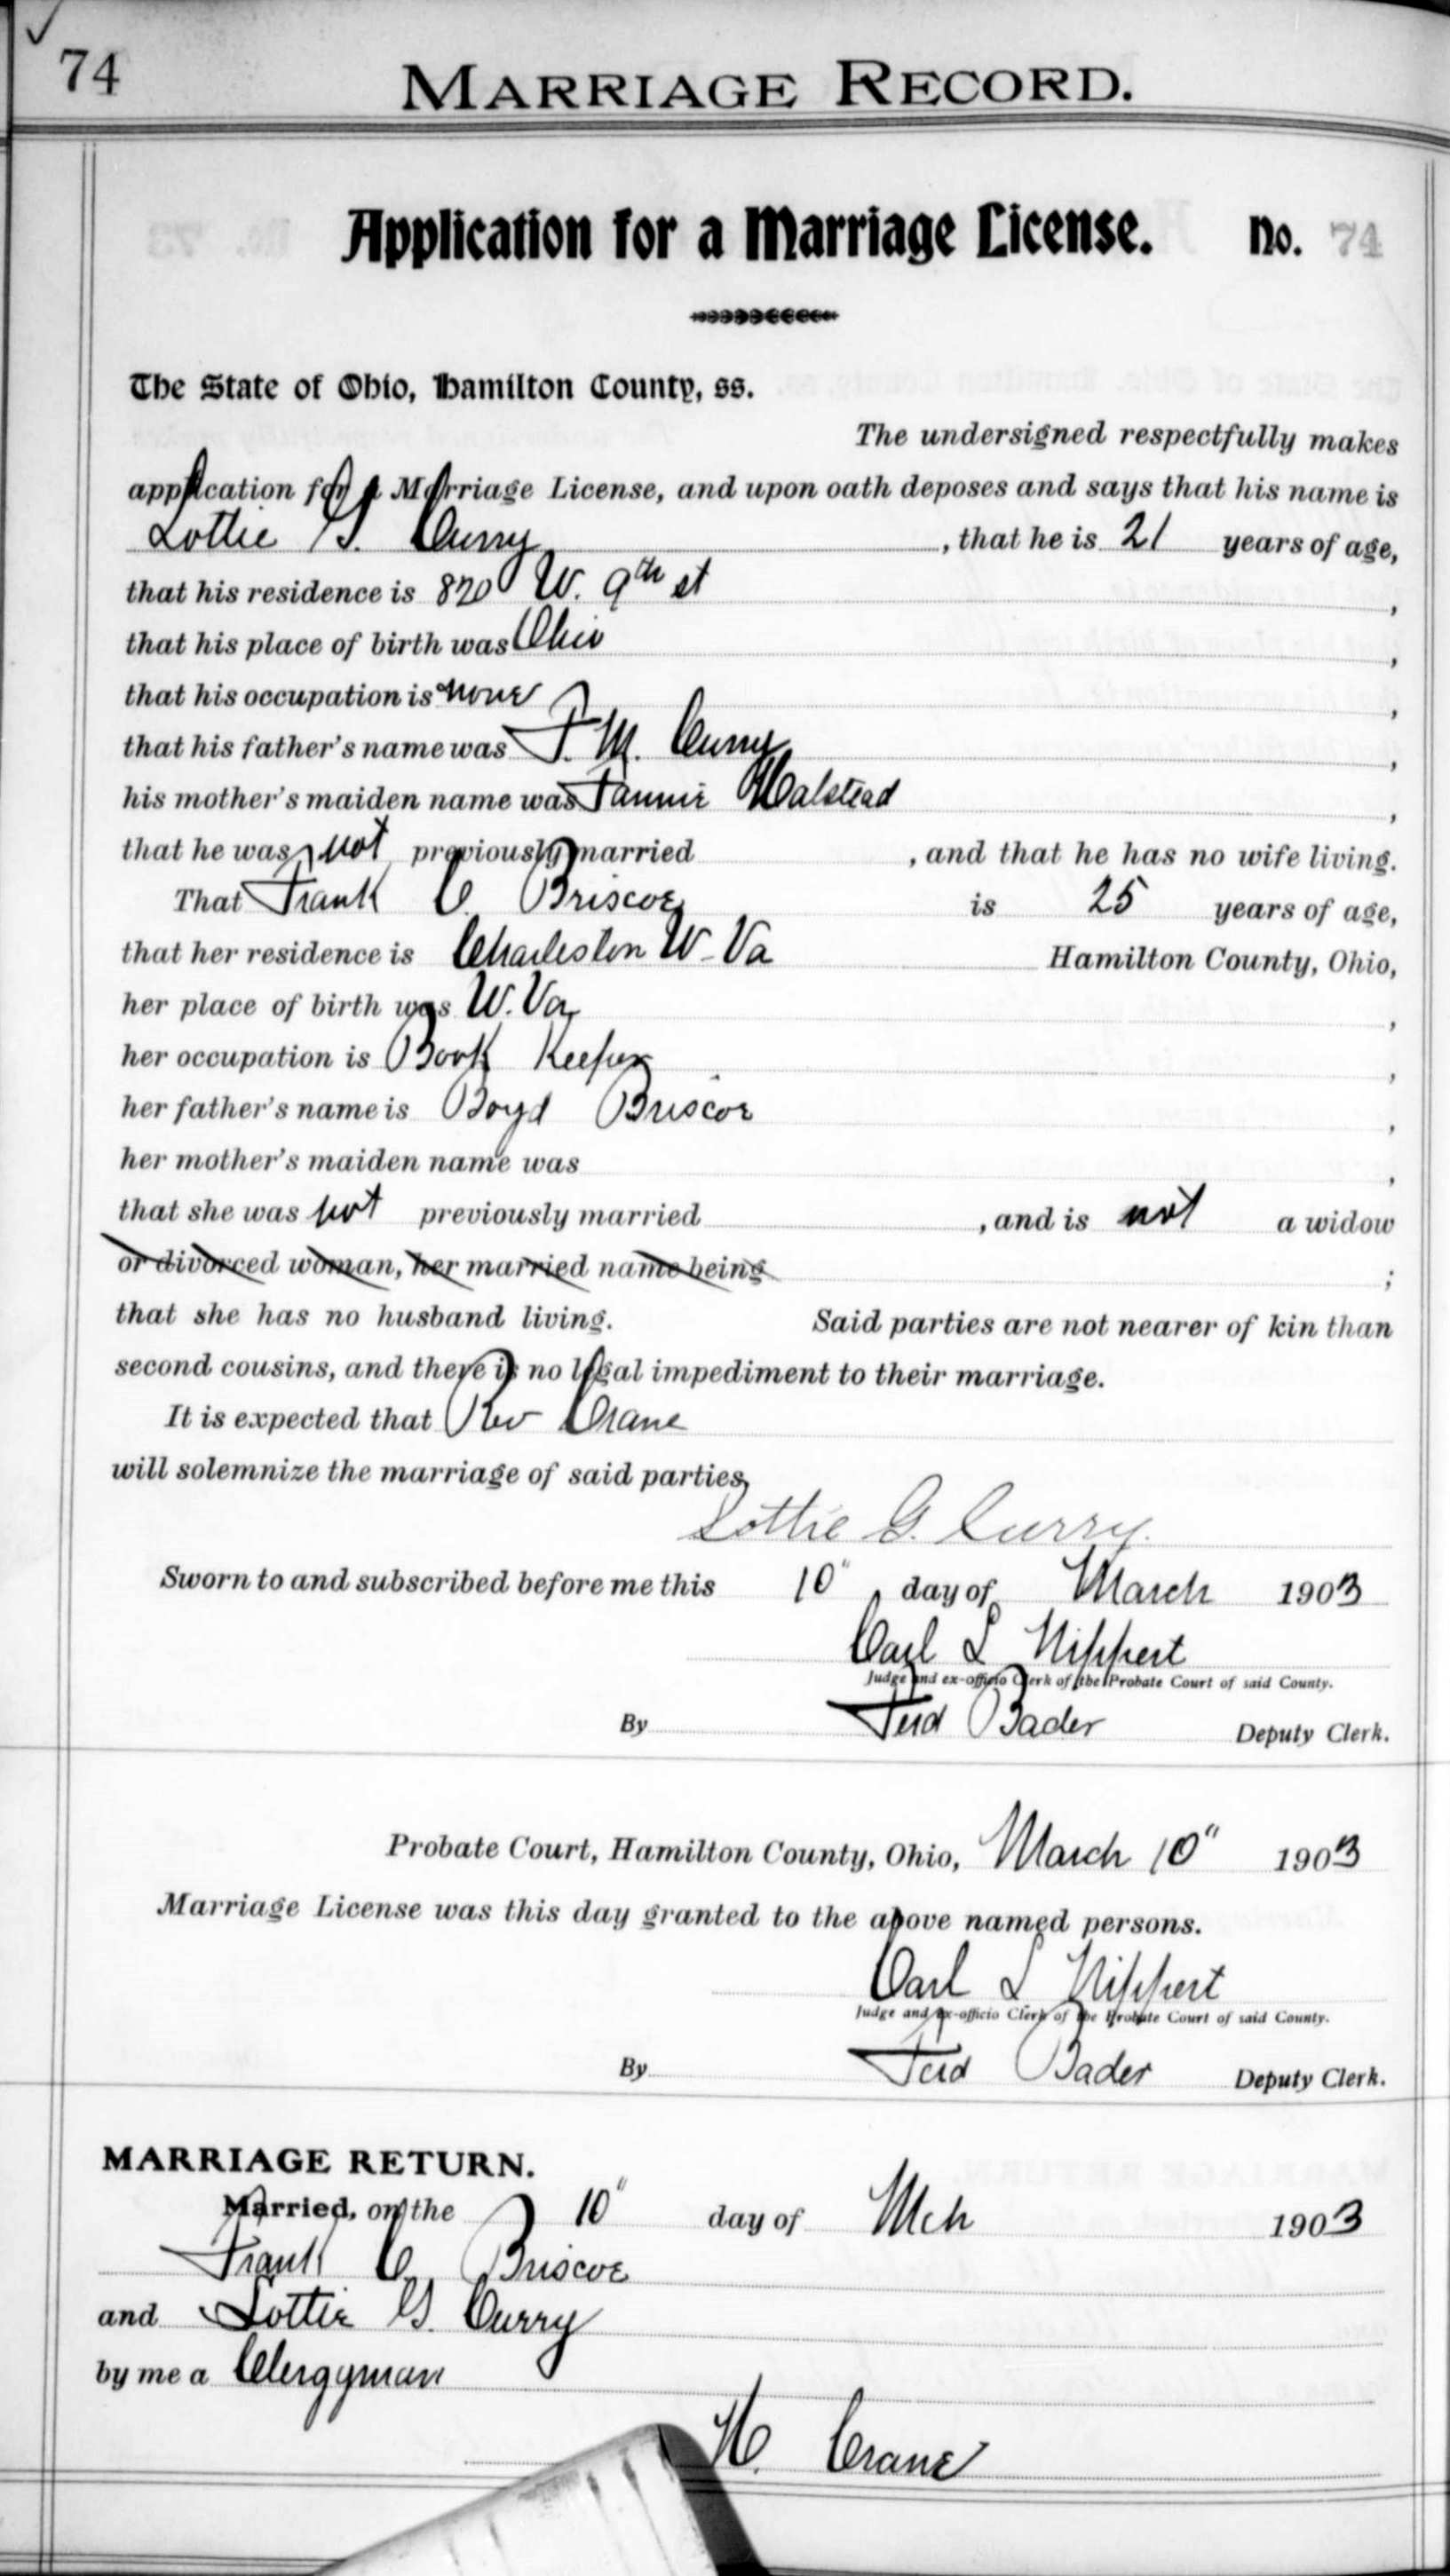 74 MARRIAGE RECORD.
Application for a Marriage License. No. 74
The State of Ohio, Hamilton County, ss.
The undersigned respectfully makes
application for a Marriage License, and upon oath deposes and says that his name is
Lottie G. Curry, that he is 21 years of age,
that his residence is 820 W. 9th st,
that his place of birth was Ohio,
that his occupation is none,
that his father's name was F. M. Curry,
his mother's maiden name was Fannie Halstead,
that he was not previously married, and that he has no wife living.
That Frank C. Briscoe is 25 years of age,
that her residence is Charleston W-Va Hamilton County, Ohio,
her place of birth was W. Va,
her occupation is Book Keeper,
her father's name is Boyd Briscoe,
her mother's maiden name was,
that she was not previously married, and is not a widow
or divorced woman, her married name being;
that she has no husband living. Said parties are not nearer of kin than
second cousins, and there is no legal impediment to their marriage.
It is expected that Rev Crane
will solemnize the marriage of said parties,
Lottie G. Curry.
Sworn to and subscribed before me this 10" day of March 1903
Carl L Nippert
Judge and ex-officio Clerk of the Probate Court of said County.
By Ferd Bader Deputy Clerk.
Probate Court, Hamilton County, Ohio, March 10" 1903
Marriage License was this day granted to the above named persons.
Carl L Nippert
Judge and ex-officio Clerk of the Probate Court of said County.
By Ferd Bader Deputy Clerk.
MARRIAGE RETURN.
Married, on the 10" day of Mch 1903
Frank C. Briscoe
and Lottie G. Curry
by me a Clergyman
H. Crane